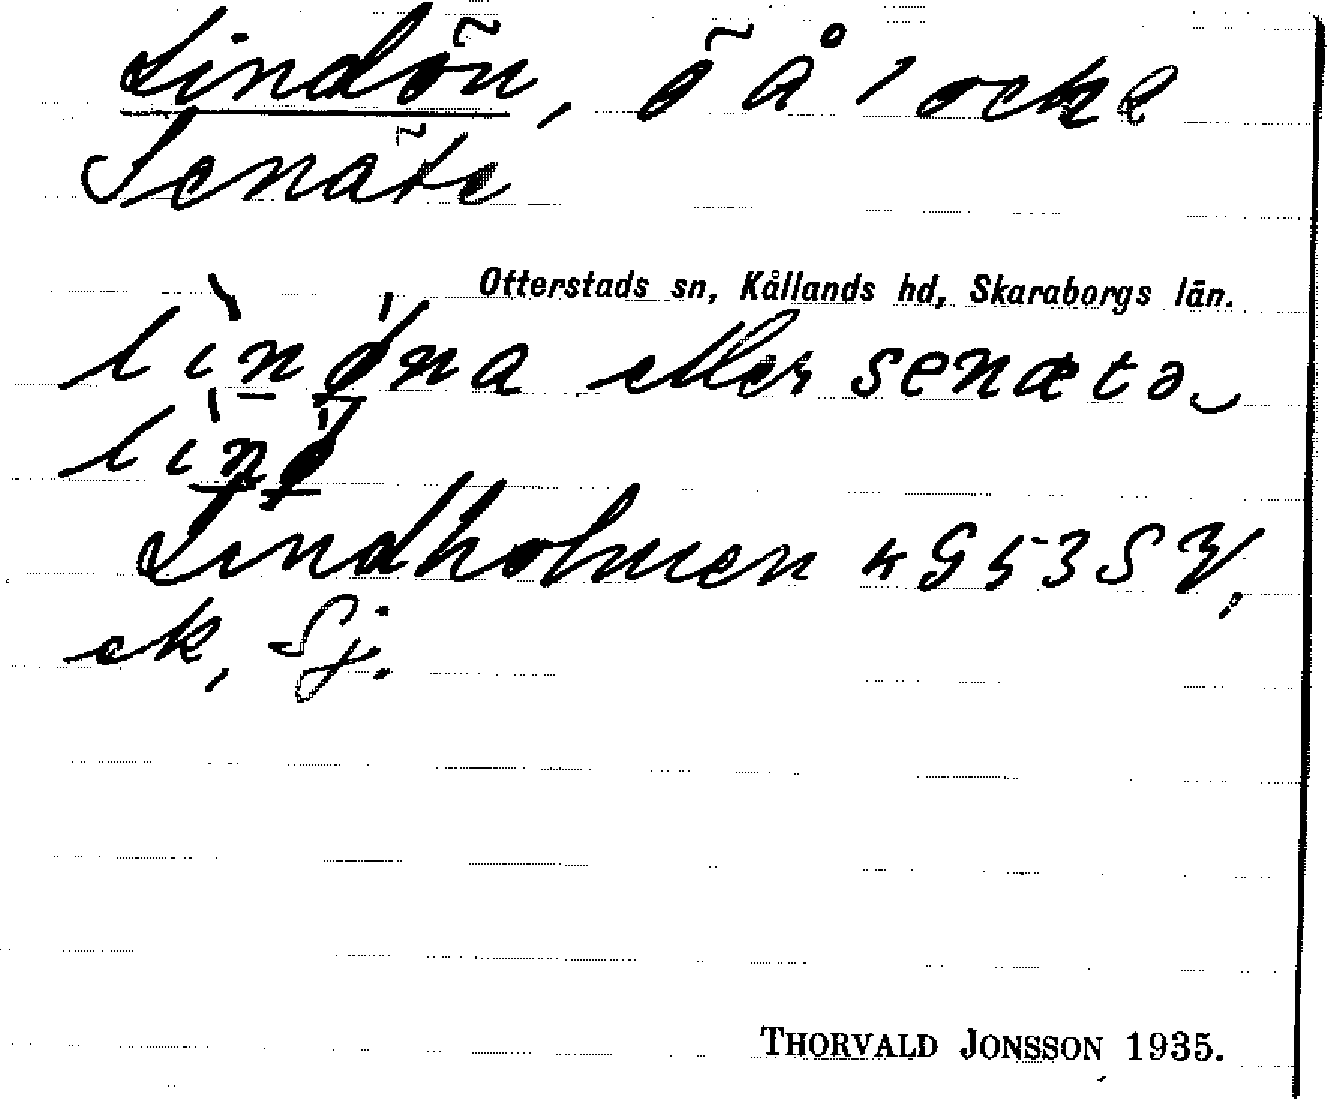 Lindön, ö å, ocks
Senäte
Otterstads sn, Kållands hd, Skaraborgs län.
lìnǿna eller senætə
lìnǿ
Lindholmen kG53SV,
ek, Sj.
THORVALD JONSSON 1935.